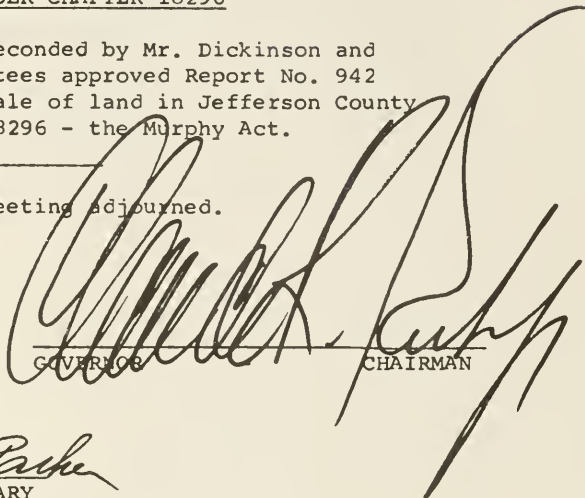 DER CHAPTER 18296
econded by Mr. Dickinson and
tees approved Report No. 942
ale of land in Jefferson County
8296 - the Murphy Act.
eeting adjourned.
GOVERNOR CHAIRMAN
Parker
ARY